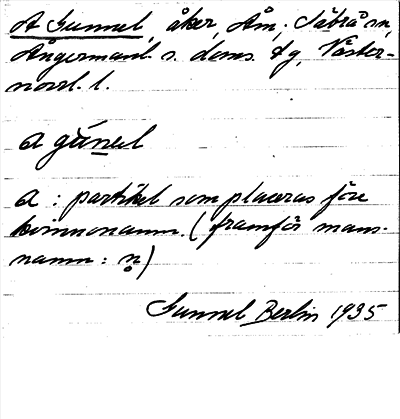 A Gunnel, åker, Åm, Säbrå sn,
Ångermanl. s. doms. dg, Väster-
norrl. l.
a gùnel
a : partikel som placeras före
kvinnonamn. (framför mans-
namn : n)
Gunnel Berlin 1935